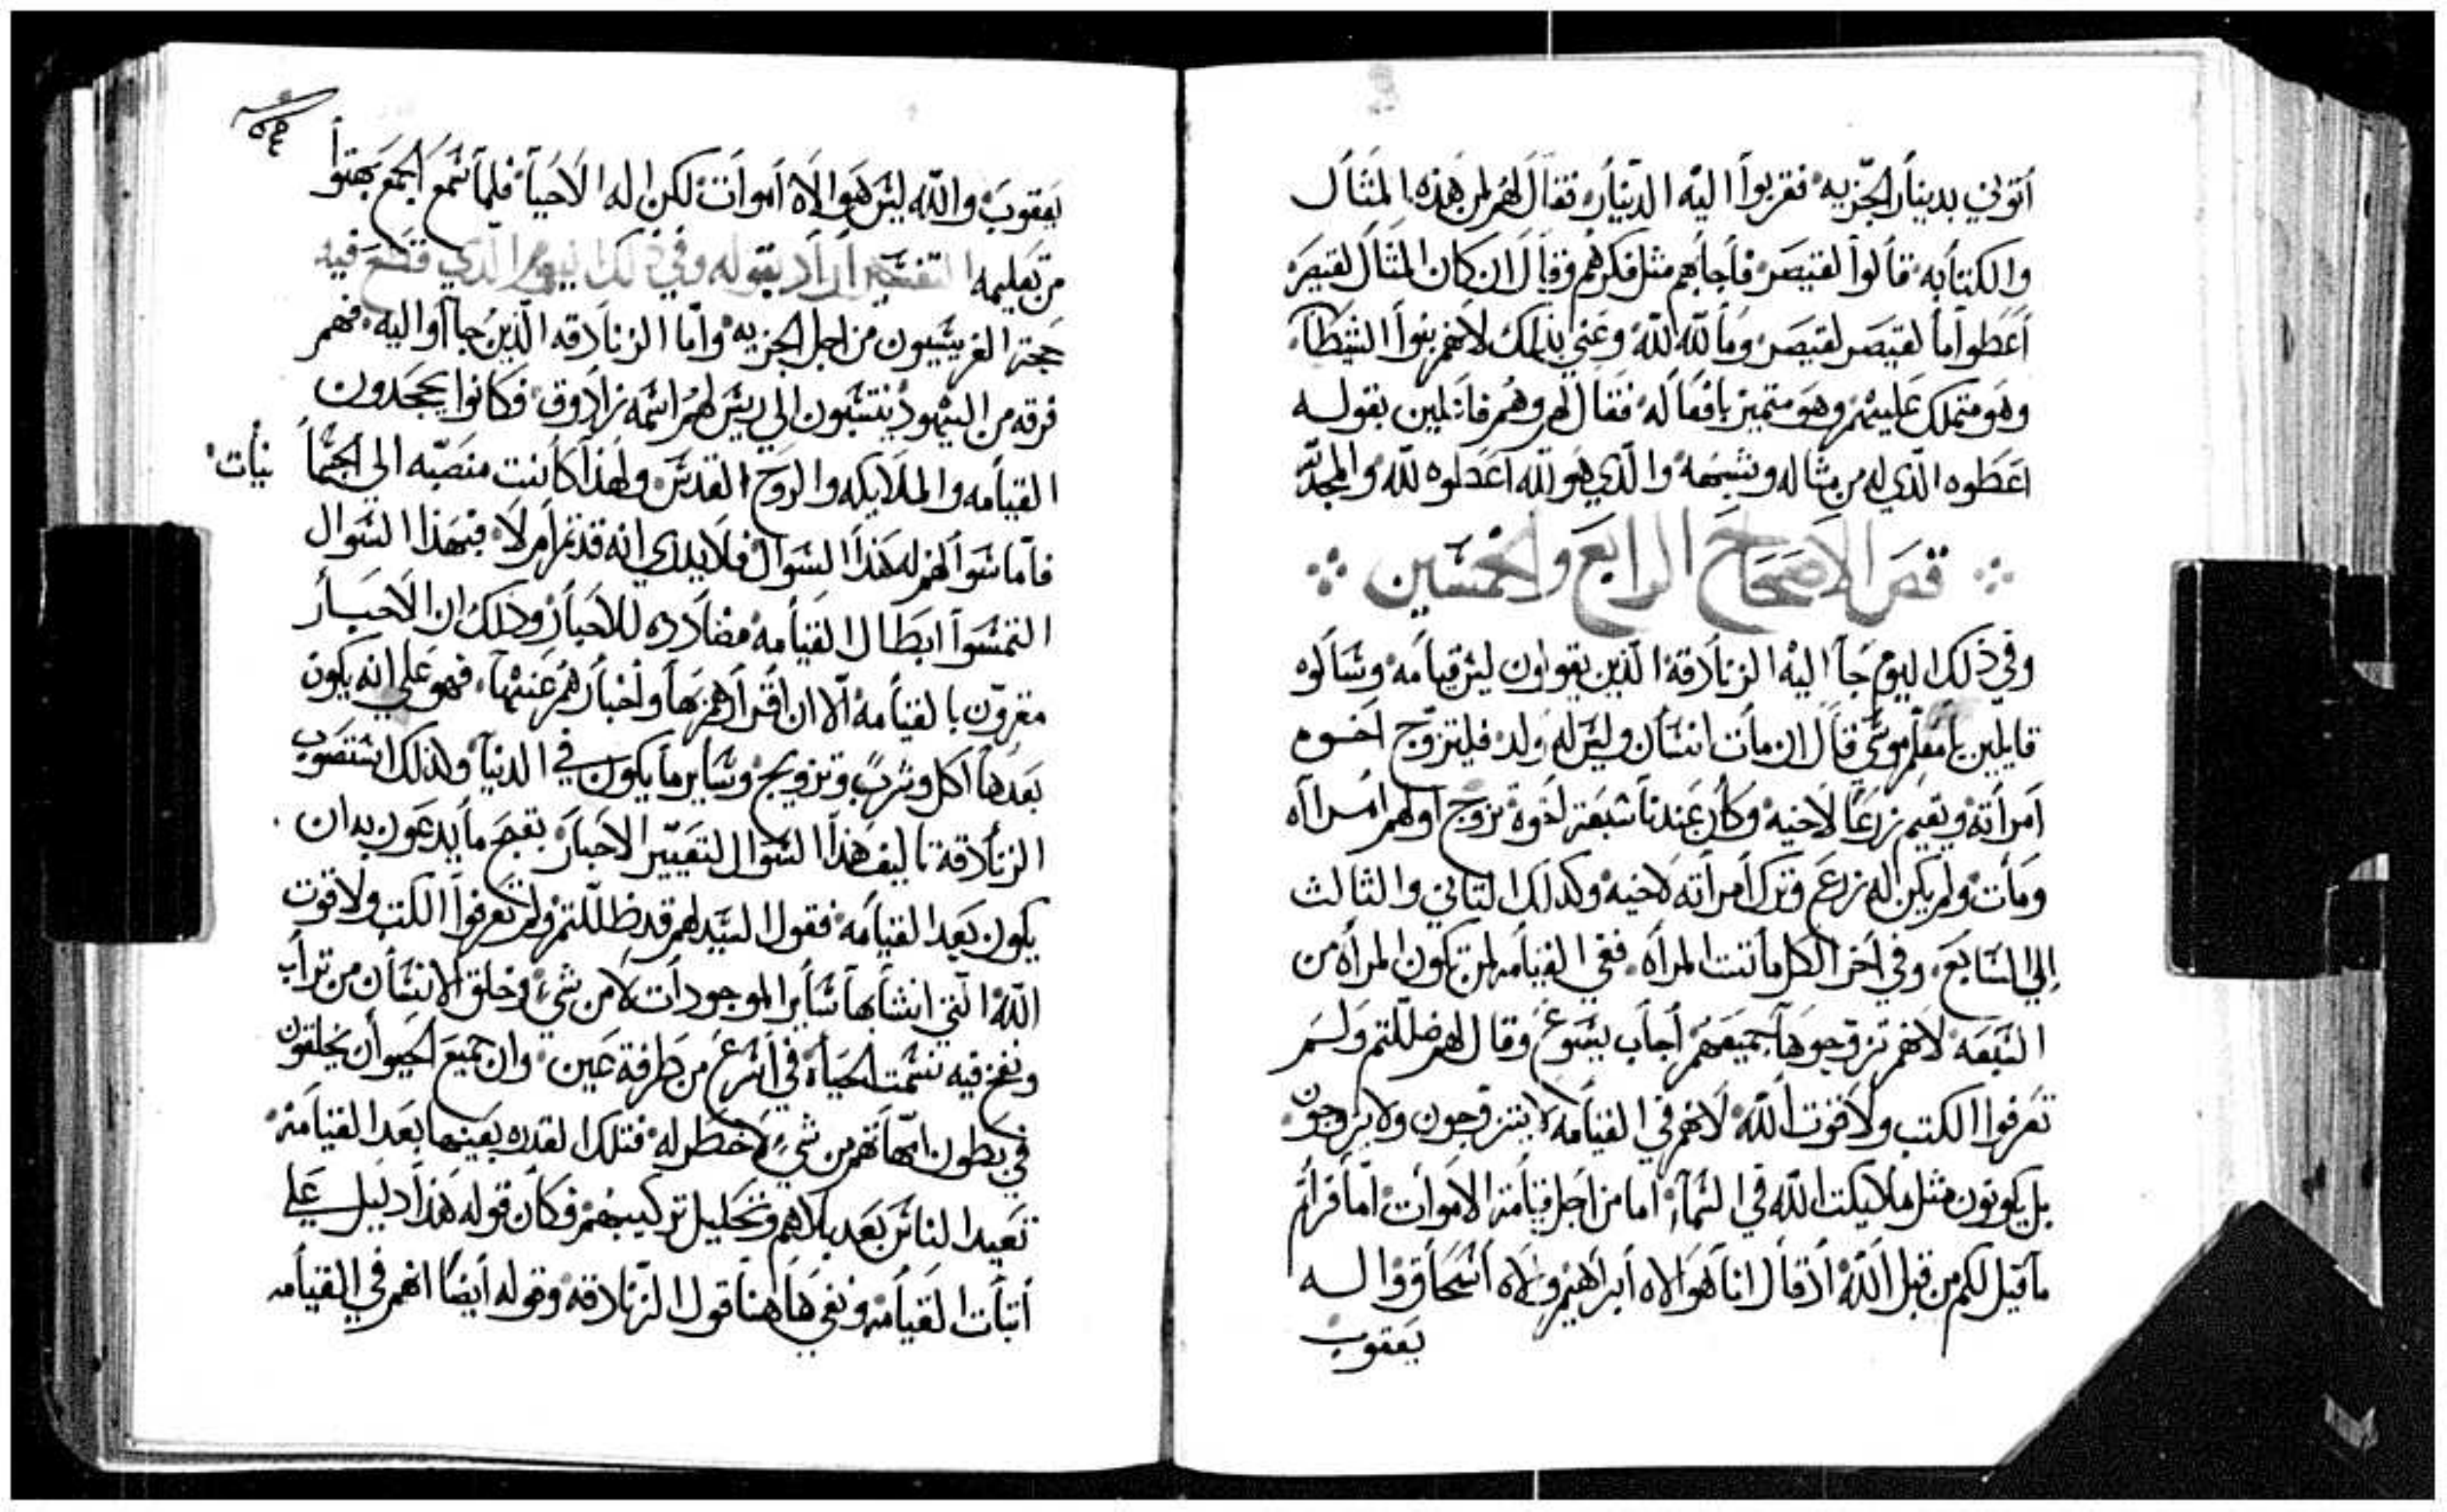 أتوني بدينار الجزيه فقربوا اليه الدينار فقال لهم لمن هذه المثال
والكتابه قالوا لقيصر فأجابهم مثل فكرهم وقال ان كان المثال لقيصر
أعطوا ما لقيصر لقيصر وما لله لله وعني بذلك لانهم بنوا الشيطان
وهو متملك عليهم وهو متميز بافعاله فقال لهم وهم قائلين بقوله
اعطوه الذي له من مثاله وشبهه والذي هو لله اعطوه لله والمجد لله
فص الاصحاح الرابع والخمسين
وفي ذلك اليوم جاا اليه الزنادقة الذين يقولون ليس قيامه وسالوه
قايلين يا معلم موسي قال ان مات انسان وليس له ولد فليتزوج اخوه
امرأته ويقيم زرعا لاخيه وكان عندنا سبعة اخوة تزوج اولهم امراه
ومات ولم يكن له زرع وترك امرأته لاخيه وكذلك التاني والثالث
الي السابع وفي اخر الكل ماتت المرأه ففي القيامه لمن تكون المرأه من
السبعه لانهم تزوجوها جميعهم أجاب يسوع وقال لهم ضللتم ولم
تعرفوا الكتب ولا قوت الله لانهم في القيامه لا يتزوجون ولا يزوجون
بل يكونون مثل ملايكت الله في السماء اما من اجل قيامة الاموات اما قرأتم
ما قيل لكم من قبل الله اذ قال انا هو الاه أبراهيم والاه أسحاق واله
يعقوب
٥٤
يعقوب والله ليس هو الاه أموات لكن اله الاحيا فلما سمع الجمع بهتوا
من تعليمه التفسير اراد بقوله وفي ذلك اليوم الذي قطع فيه
حجة الفريسيون من اجل الجزيه واما الزنادقه الذين جااوا اليه فهم
فرقه من اليهود ينتسبون الي ريس لهم اسمه زادوق فكانوا يجحدون
القيامه والملايكه والروح القدس ولهذا كانت منصبه الي الجسما نيات
فاما سوالهم له هذا السوال فلا يدري انه قد تم ام لا فبهذا السوال
التمسوا ابطال القيامه مضادده للاحبار وذلك ان الاحبار
مقرون بالقيامه الا ان اقرارهم بها واخبارهم عنها فهو علي انه يكون
بعدها اكل وشرب وتزويج وساير ما يكون في الدنيا ولذلك استصوب
الزنادقة تاليف هذا السوال لتعيير الاحبار بقبح ما يدعون به ان
يكون بعد القيامه فقول السيد لهم قد ظللتم ولم تعرفوا الكتب ولا قوت
الله التي انشا بها ساير الموجودات لا من شيء وخلق الانسان من تراب
ونفخ فيه نسمت الحياه في اسرع من طرفة عين وان جميع الحيوان يخلقون
في بطون امهاتهم من شيء لا خطر له فتلك القدره بعينها بعد القيامة
تعيد الناس بعد بلاهم وتحليل تركيبهم فكان قوله هذا دليل علي
أتبات القيامة ونفي هاهنا قول الزنادقه وقوله أيضا انهم في القيامه